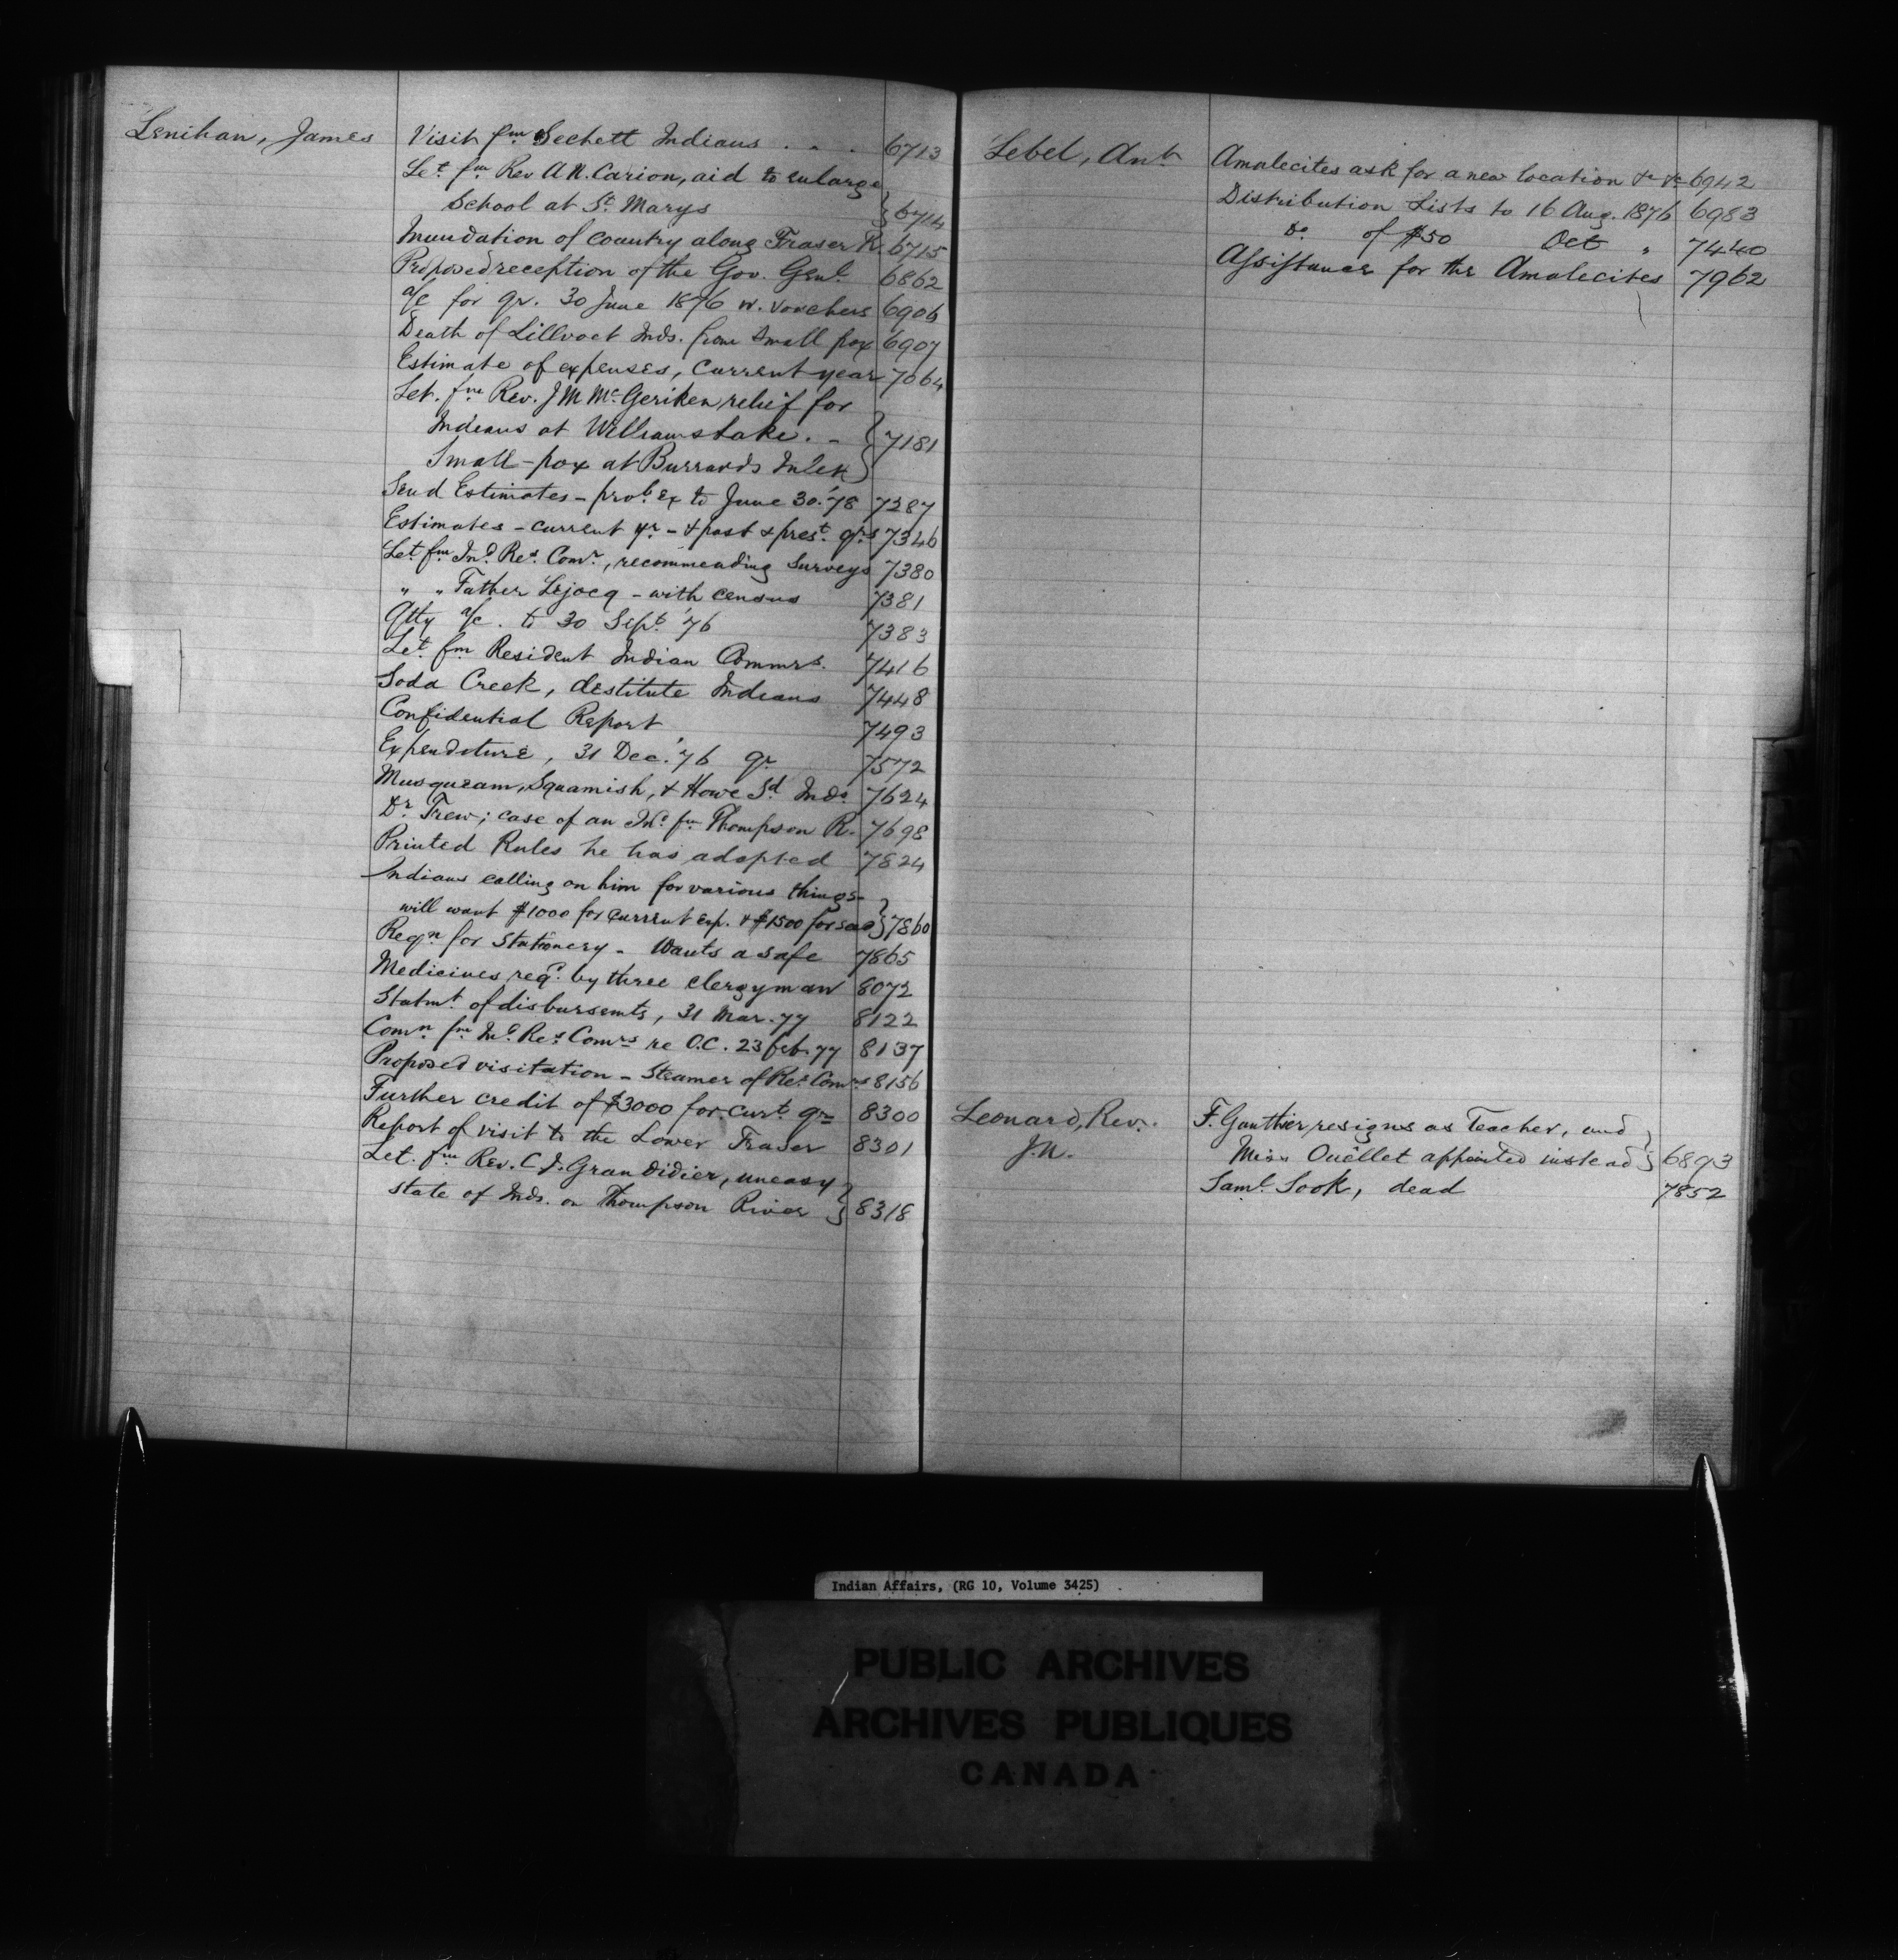 Lenihan, James
Visit fm Sechett Indians . . . 6713
Let fm Rev A.N. Carion, aid to enlarge
School at St Marys } 6714
Inundation of country along Fraser R. 6715
Proposed reception of the Gov. Genl. 6862
a/c for qr. 30 June 1876 w. vouchers 6906
Death of Lillooet Inds. from small pox 6907
Estimate of expenses, current year 7064
Let. fm Rev. J M McGeriken relief for
Indians at Williams Lake. - } 7181
Small-pox at Burrards Inlet
Send Estimates - prob. ex to June 30. '78 7287
Estimates - current yr - & past & prest. qrs 7346
Let. fm Ind Res. Comr., recommending surveys 7380
" " Father Lejocq - with census 7381
Qtly a/c. to 30 Sept. '76 7383
Let. fm Resident Indian Commrs. 7416
Soda Creek, destitute Indians 7448
Confidential Report 7493
Expenditure, 31 Dec. '76 qr 7572
Musqueam, Squamish, & Howe Sd Inds. 7624
Dr Trew; case of an Ind. fm Thompson R. 7698
Printed Rules he has adopted 7824
Indians calling on him for various things-
will want $1000 for current exp. & $1500 for } 7860
Reqn for Stationery - Wants a safe 7865
Medicines reqd. by three clergyman 8072
Statmt. of disbursemts, 31 Mar. 77 8122
Comn fm Ind Res Comrs re O.C. 23 feb. 77 8137
Proposed visitation - Steamer of Res. Comrs 8156
Further credit of $3000 for curt. qr 8300
Report of visit to the Lower Fraser 8301
Let. fm Rev. C.J. Grandidier, uneasy
state of Inds. on Thompson River } 8318
Lebel, Ant.
Amalecites ask for a new location &c &c 6942
Distribution Lists to 16 Aug. 1876 6983
Do of $50 Oct " 7440
Assistance for the Amalecites 7962
Leonard, Rev.
J.N.
F. Gauthier resigns as Teacher, and
Miss Ouêllet appointed instead } 6893
Saml. Sook, dead 7852
Indian Affairs, (RG 10, Volume 3425)
PUBLIC ARCHIVES
ARCHIVES PUBLIQUES
CANADA